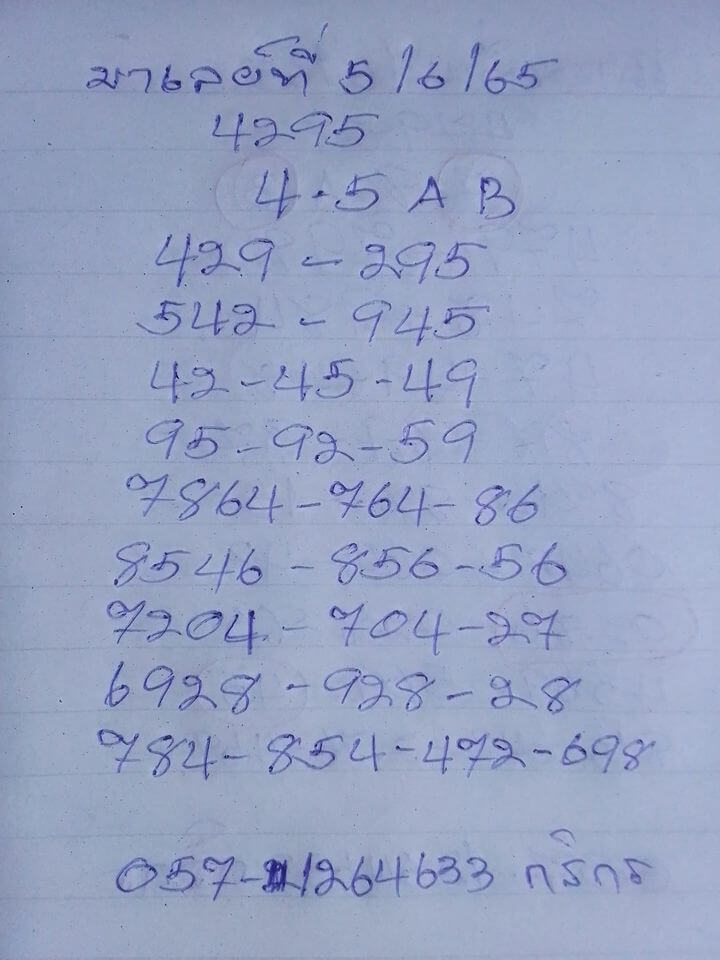 มาเลย์ที่ 5/6/65
4295
4.5 A B
429 - 295
542 - 945
42 - 45 - 49
95 - 92 - 59
7864 - 764 - 86
8546 - 856 - 56
7204 - 704 - 27
6928 - 928 - 28
784 - 854 - 472 - 698
057-1264633